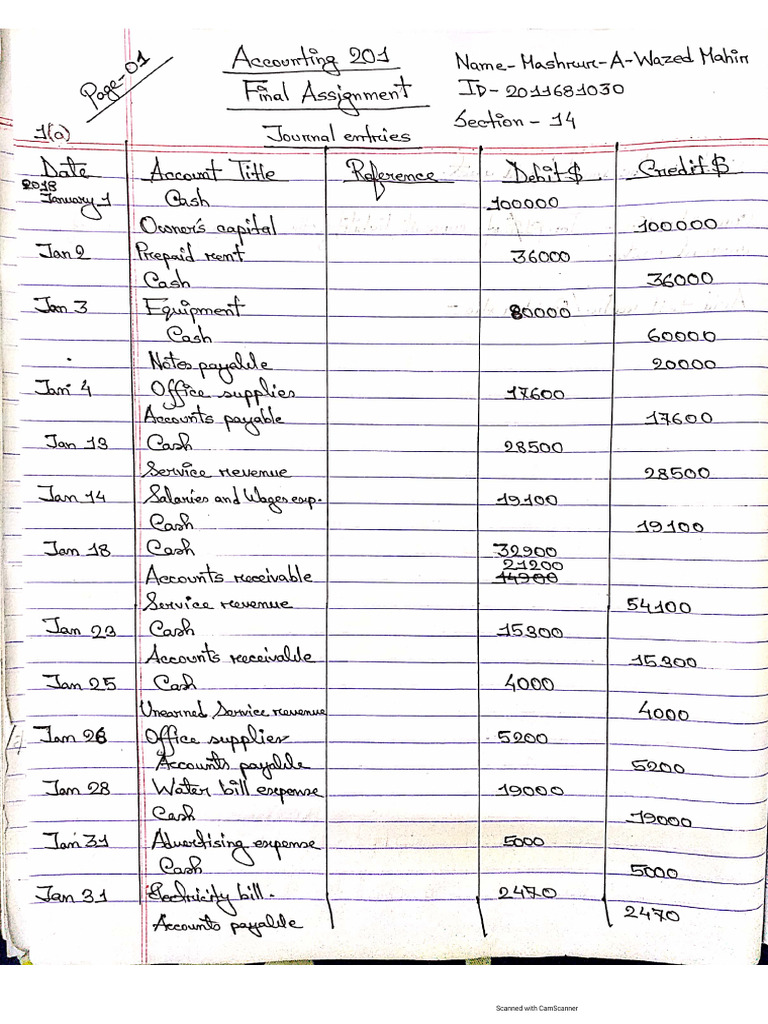 Page-01
Accounting 201
Final Assignment
Name-Mashrur-A-Wazed Mahin
ID-2011681030
Section - 14
1(a)
Journal entries
Date Account Title Reference Debit $ Credit $
2018
January 1 Cash 100000
Owner's capital 100000
Jan 2 Prepaid rent 36000
Cash 36000
Jan 3 Equipment 80000
Cash 60000
Notes payable 20000
Jan 4 Office supplies 17600
Accounts payable 17600
Jan 13 Cash 28500
Service revenue 28500
Jan 14 Salaries and Wages exp. 19100
Cash 19100
Jan 18 Cash 32900
21200
Accounts receivable 14900
Service revenue 54100
Jan 23 Cash 15300
Accounts receivable 15300
Jan 25 Cash 4000
Unearned Service revenue 4000
Jan 26 Office supplies 5200
Accounts payable 5200
Jan 28 Water bill expense 19000
Cash 19000
Jan 31 Advertising expense 5000
Cash 5000
Jan 31 Electricity bill. 2470
Accounts payable 2470
Scanned with CamScanner